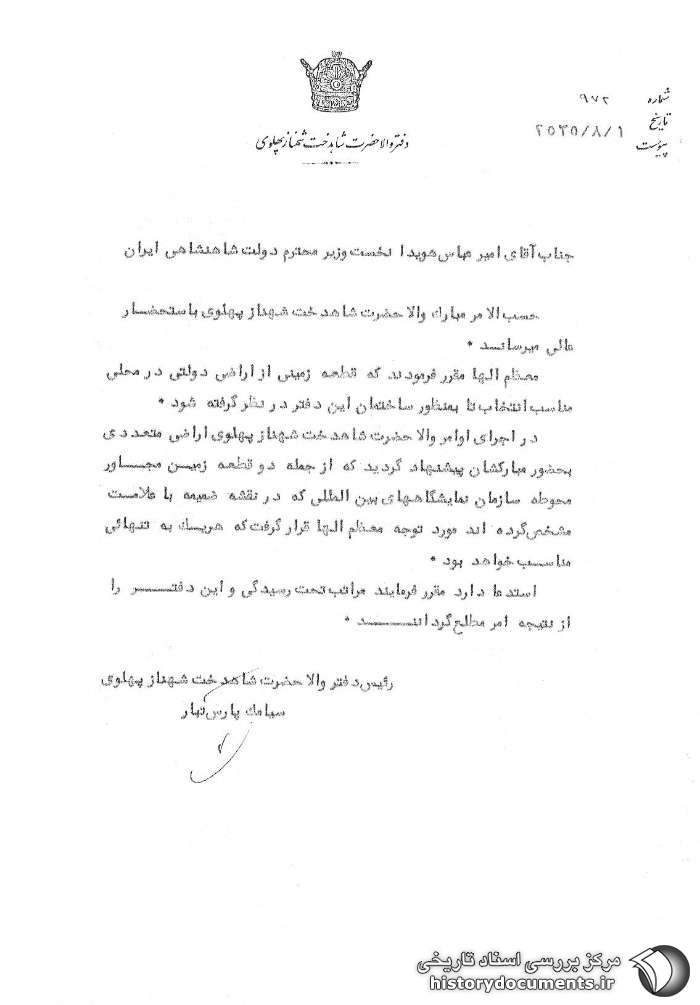 شماره ۹۷۲
تاریخ ۲۵۳۵/۸/۱
پیوست
دفتر والاحضرت شاهدخت شهناز پهلوی
جناب آقای امیر عباس هویدا نخست وزیر محترم دولت شاهنشاهی ایران
حسب الامر مبارك والا حضرت شاهدخت شهناز پهلوی باستحضار
عالی میرساند ٠
معظم الها مقرر فرمودند که قطعه زمینی از اراضی دولتی در محلی
مناسب انتخاب تا بمنظور ساختمان این دفتر در نظر گرفته شود ٠
در اجرای اوامر والا حضرت شاهدخت شهناز پهلوی اراضی متعددی
بحضور مبارکشان پیشنهاد گردید که از جمله دو قطعه زمین مجاور
محوطه سازمان نمایشگاههای بین المللی که در نقشه ضمیمه با علامت
مشخص گرده اند مورد توجه معظم الها قرار گرفت که هریك به تنهائی
مناسب خواهد بود ٠
استدعا دارد مقرر فرمایند مراتب تحت رسیدگی و این دفتر را
از نتیجه امر مطلع گردانند ٠
رئیس دفتر والا حضرت شاهدخت شهناز پهلوی
سیامك پارس تبار
مرکز بررسی اسناد تاریخی
historydocuments.ir